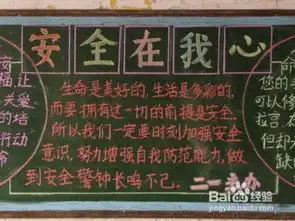 安全在我心
生命是美好的,生活是多彩的,
而要拥有这一切的前提是安全.
所以我们一定要时刻加强安全
意识,努力增强自我防范能力,做
到安全警钟长鸣不已.
安
福让
关爱
的墙
行动
命
命
您的
可以修
拉宫.
但却
缺
Baidu经验
jingyan.baidu.com